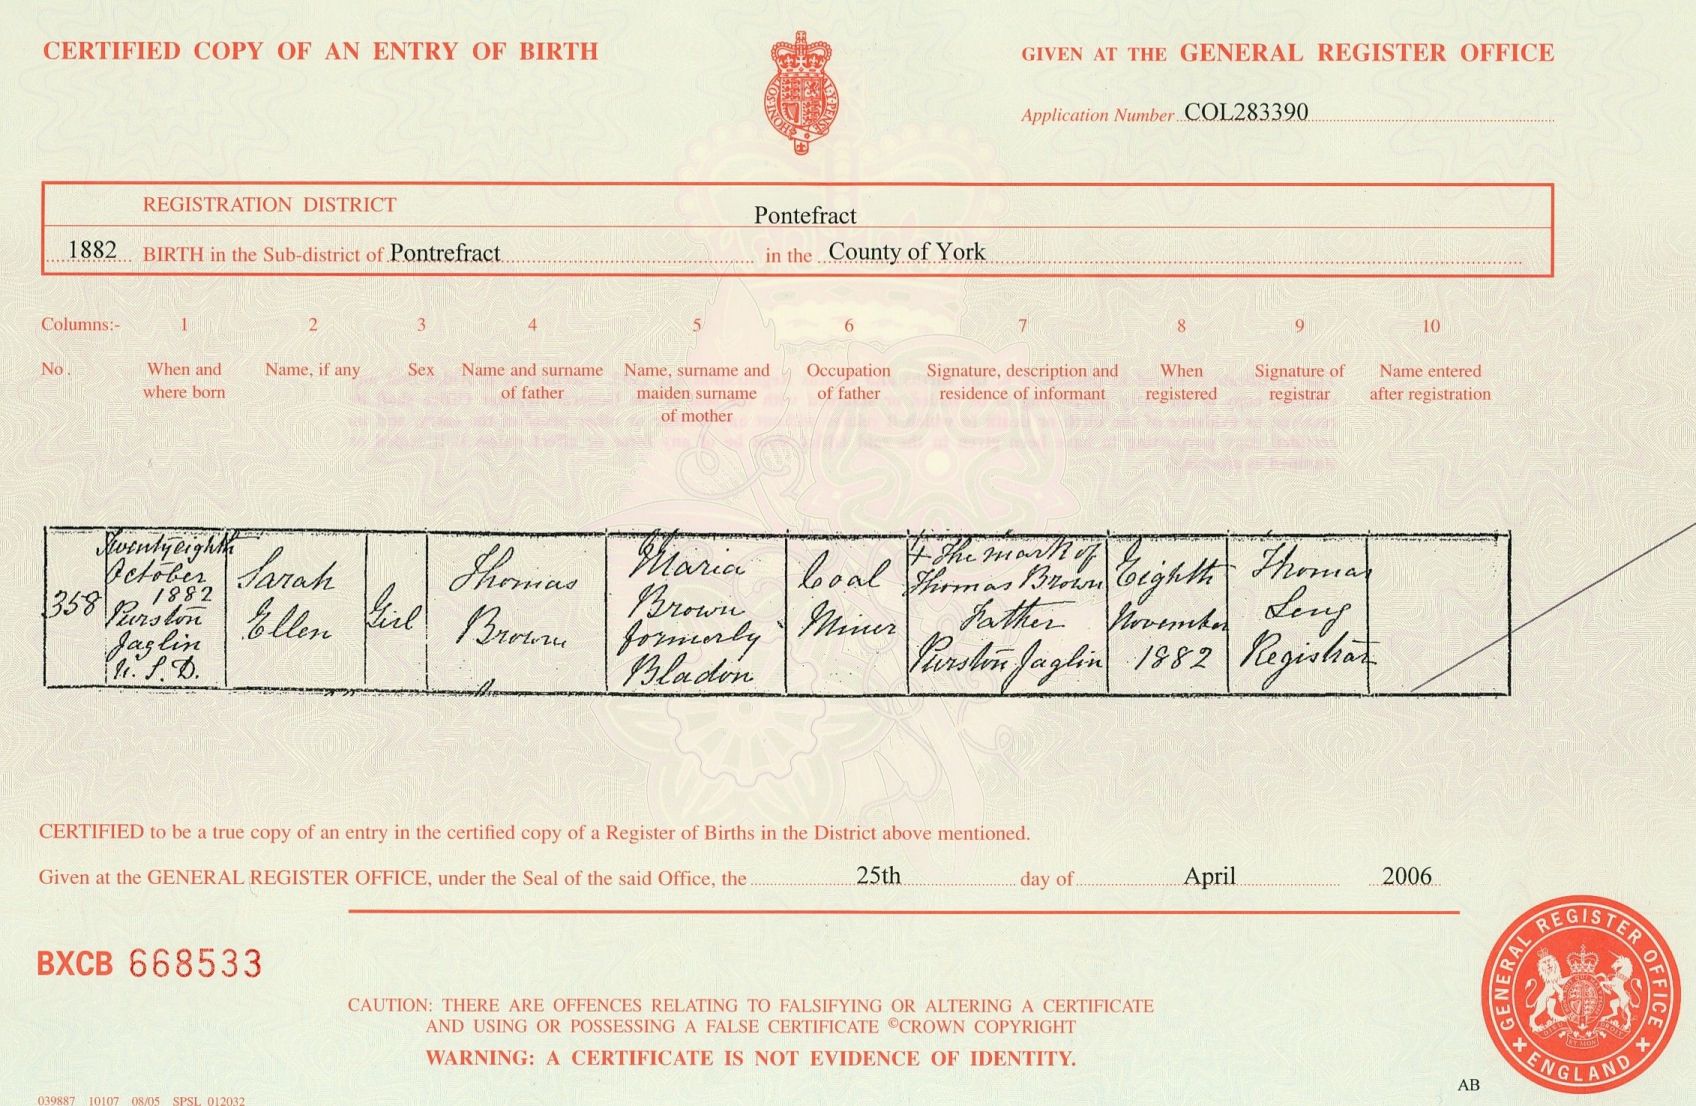 CERTIFIED COPY OF AN ENTRY OF BIRTH
GIVEN AT THE GENERAL REGISTER OFFICE
Application Number COL283390
REGISTRATION DISTRICT
Pontefract
1882 BIRTH in the Sub-district of Pontrefract in the County of York
Columns:- 1 2 3 4 5 6 7 8 9 10
No. When and where born Name, if any Sex Name and surname of father Name, surname and maiden surname of mother Occupation of father Signature, description and residence of informant When registered Signature of registrar Name entered after registration
358
Twentyeighth
October
1882
Purston
Jaglin
U. S. D.
Sarah
Ellen
Girl
Thomas
Brown
Maria
Brown
formerly
Bladon
Coal
Miner
+ The mark of
Thomas Brown
Father
Purston Jaglin
Eighth
November
1882
Thomas
Leng
Registrar
CERTIFIED to be a true copy of an entry in the certified copy of a Register of Births in the District above mentioned.
Given at the GENERAL REGISTER OFFICE, under the Seal of the said Office, the 25th day of April 2006
BXCB 668533
CAUTION: THERE ARE OFFENCES RELATING TO FALSIFYING OR ALTERING A CERTIFICATE
AND USING OR POSSESSING A FALSE CERTIFICATE ©CROWN COPYRIGHT
WARNING: A CERTIFICATE IS NOT EVIDENCE OF IDENTITY.
GENERAL REGISTER OFFICE
ENGLAND
AB
039887 10107 08/05 SPSL 012032